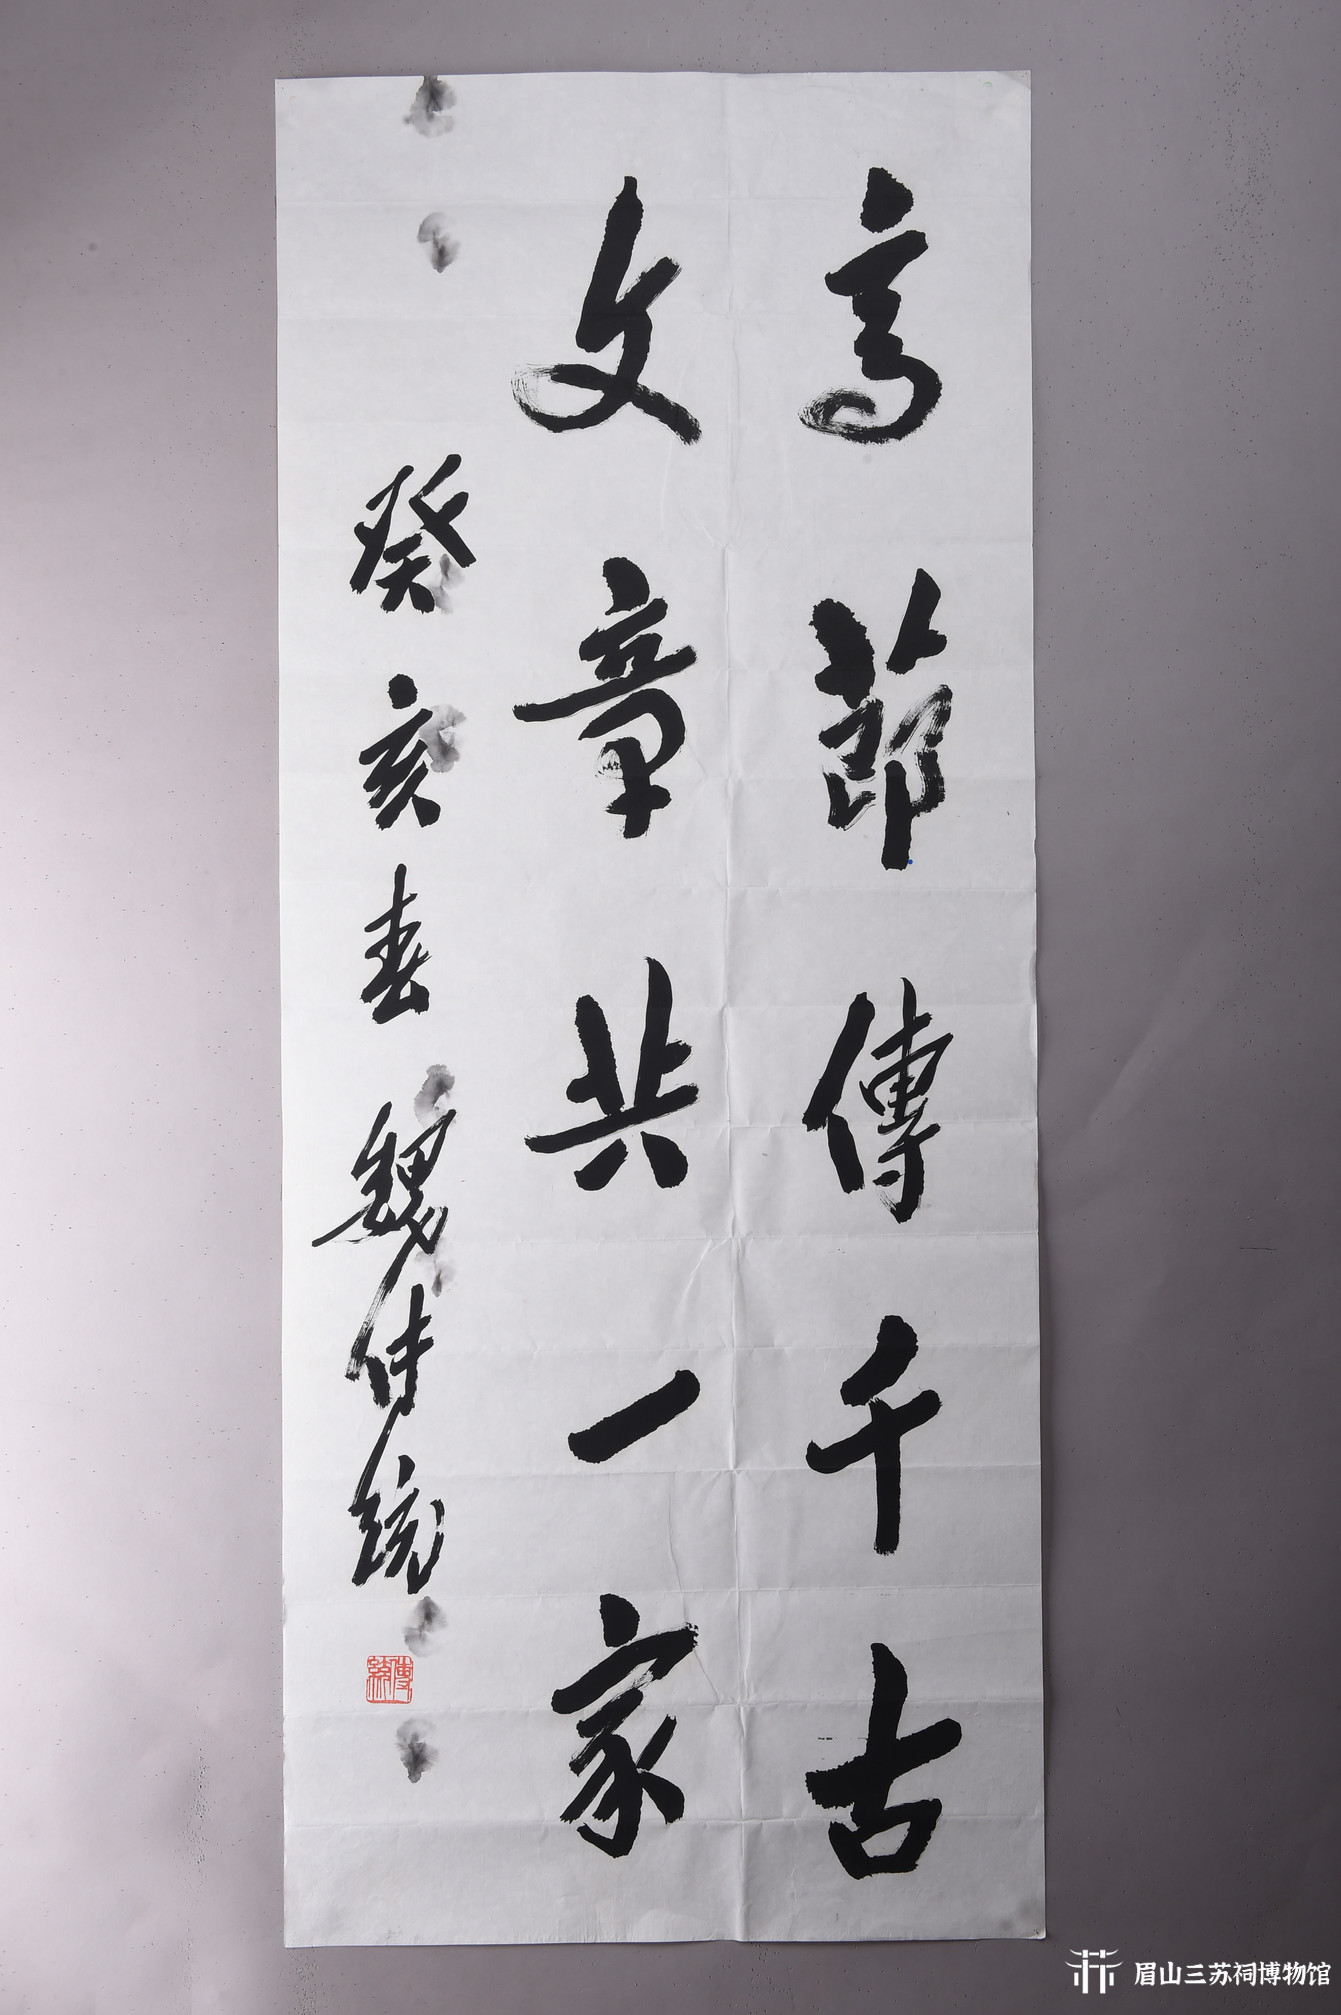 高節傳千古
文章共一家
癸亥春 魏传統
傳統
眉山三苏祠博物馆